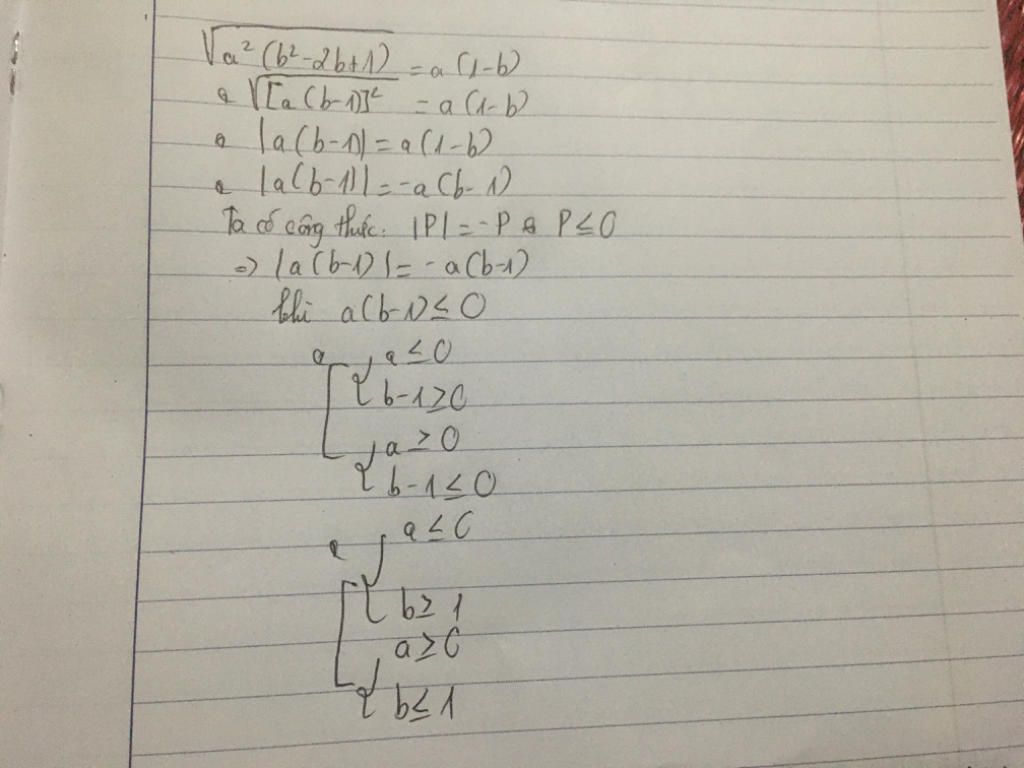 √a²(b²-2b+1) = a(1-b)
⇔ √[a(b-1)]² = a(1-b)
⇔ |a(b-1)| = a(1-b)
⇔ |a(b-1)| = -a(b-1)
Ta có công thức: |P| = -P ⇔ P ≤ 0
⇒ |a(b-1)| = -a(b-1)
khi a(b-1) ≤ 0
⇔ [ { a ≤ 0
b-1 ≥ 0
{ a ≥ 0
b-1 ≤ 0
⇔ [ { a ≤ 0
b ≥ 1
{ a ≥ 0
b ≤ 1